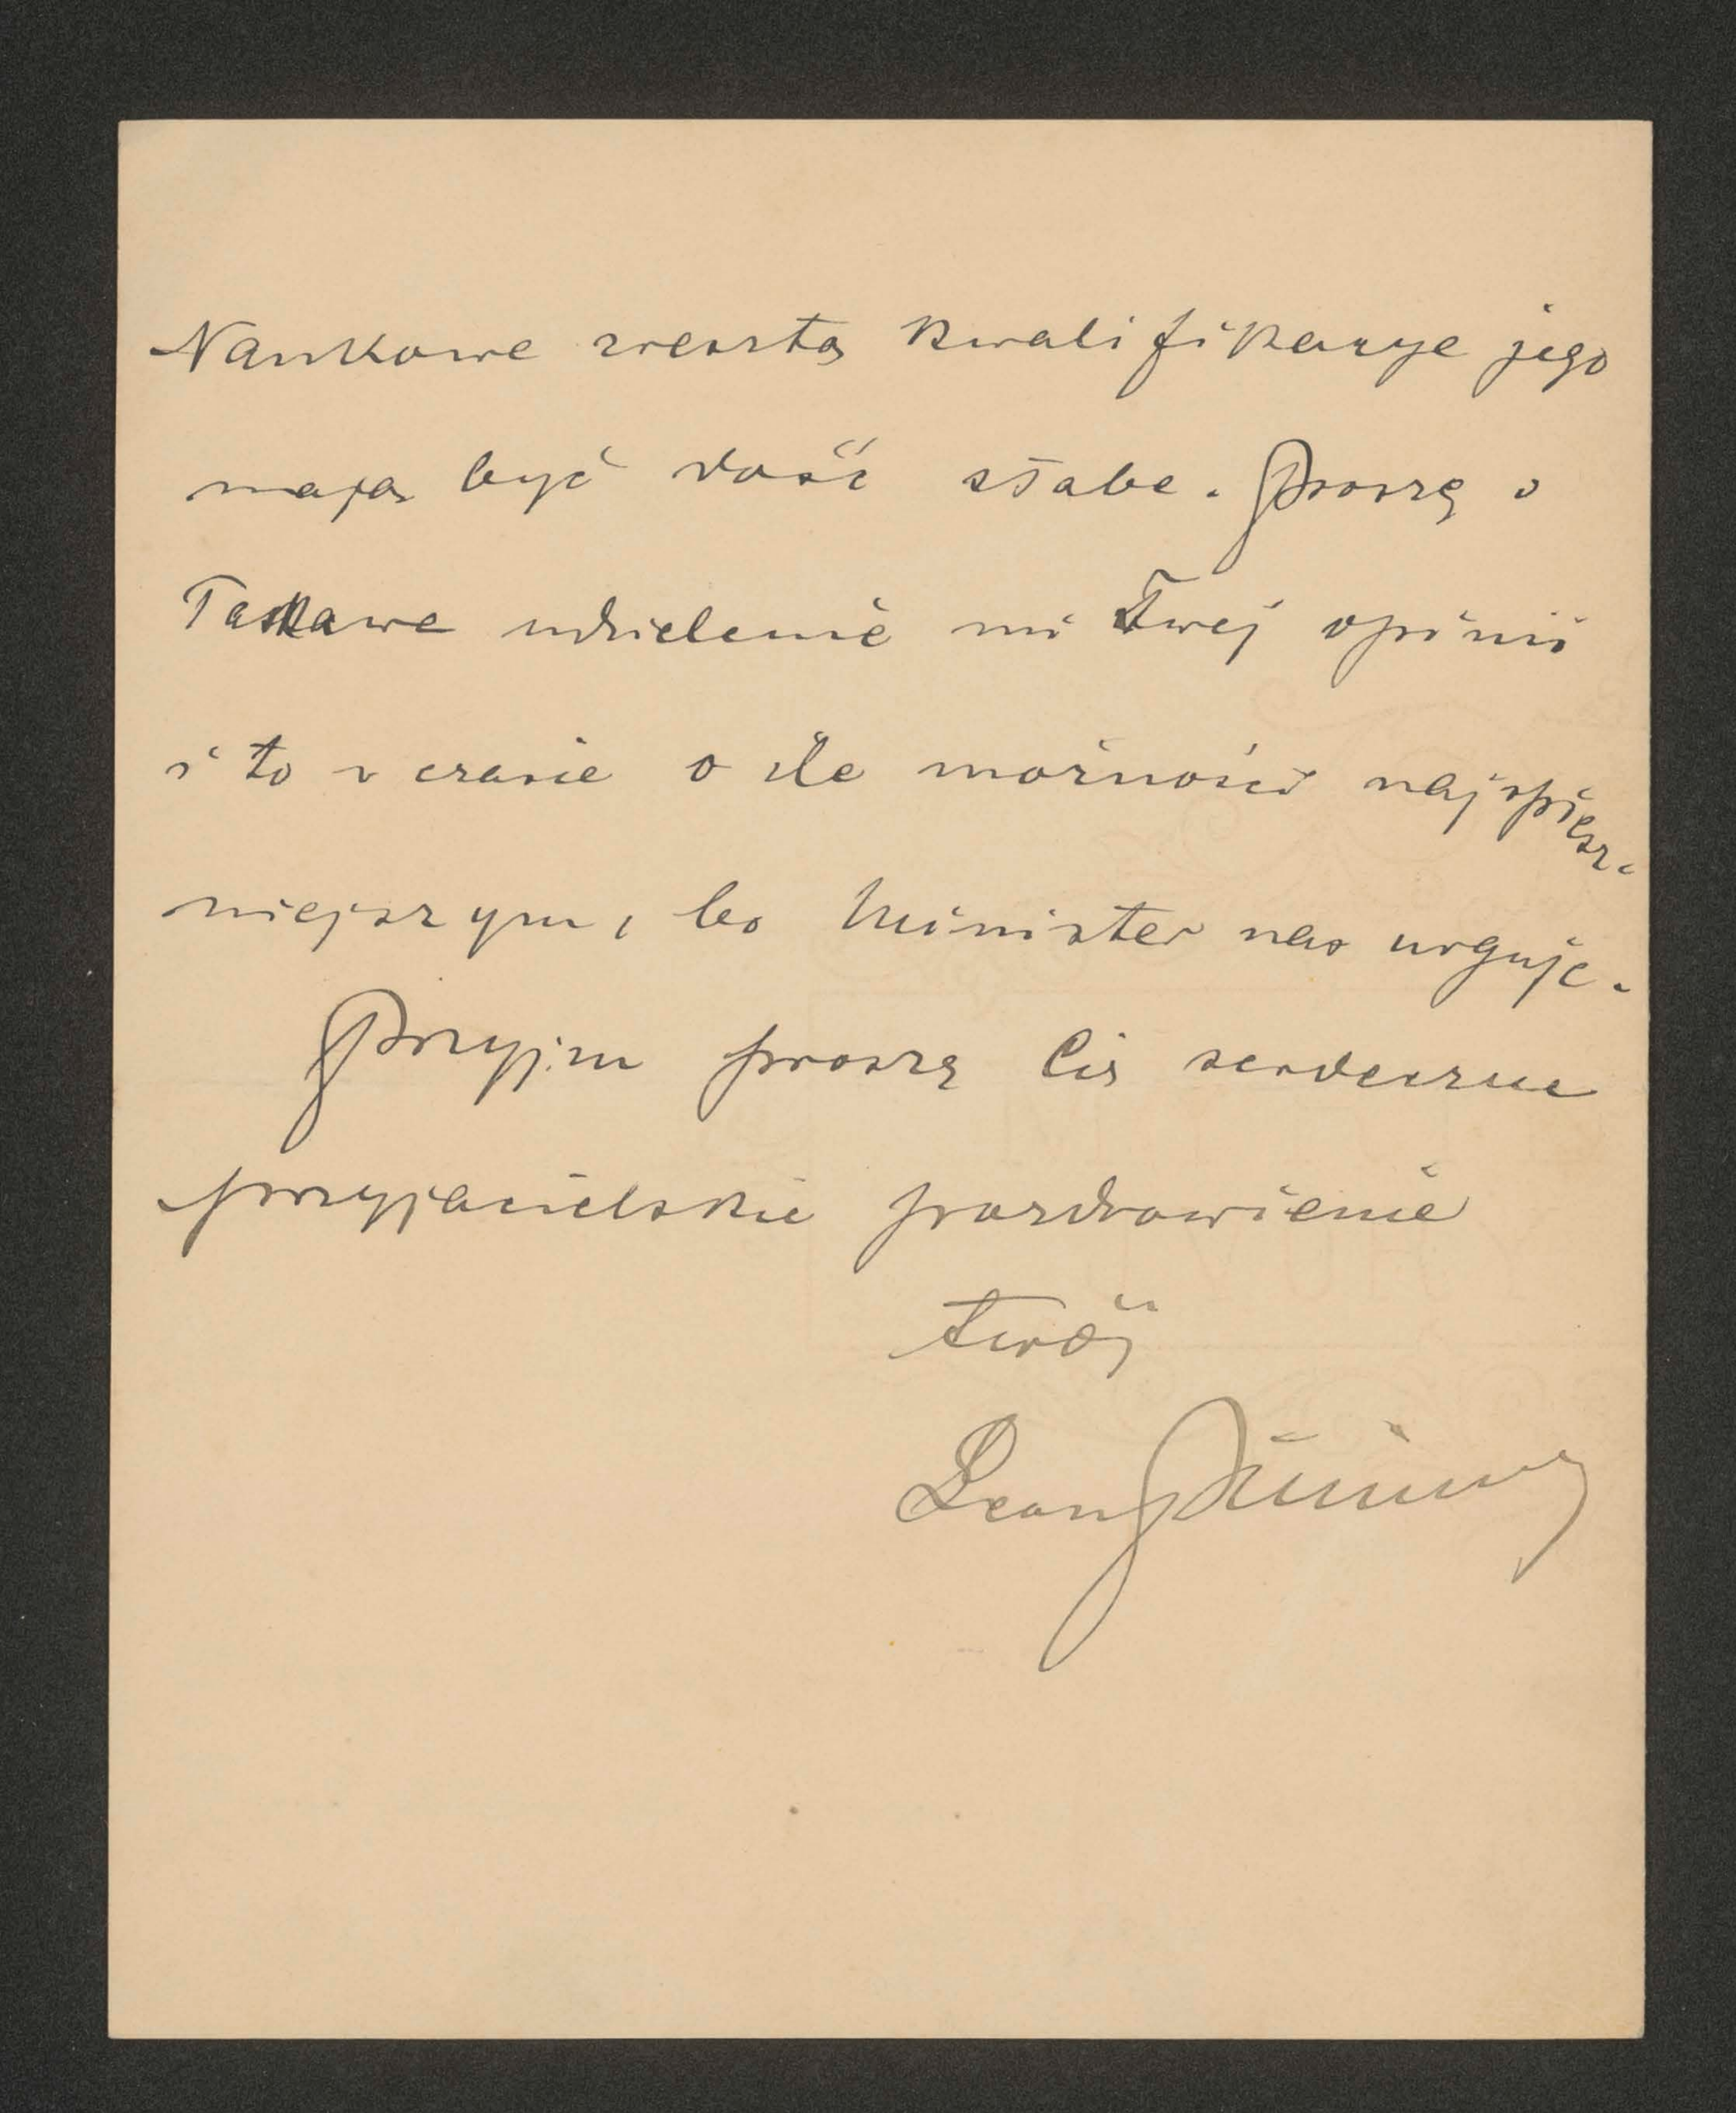 Naukowe zresztą kwalifikacye jego
mają być dość słabe. Proszę o
łaskawe udzielenie mi Twej opinii
i to w czasie o ile możności najspiesz-
niejszym, bo Minister nas urguje.
Przyjm proszę Cię serdeczne
przyjacielskie pozdrowienie
twój
Leon Piniński